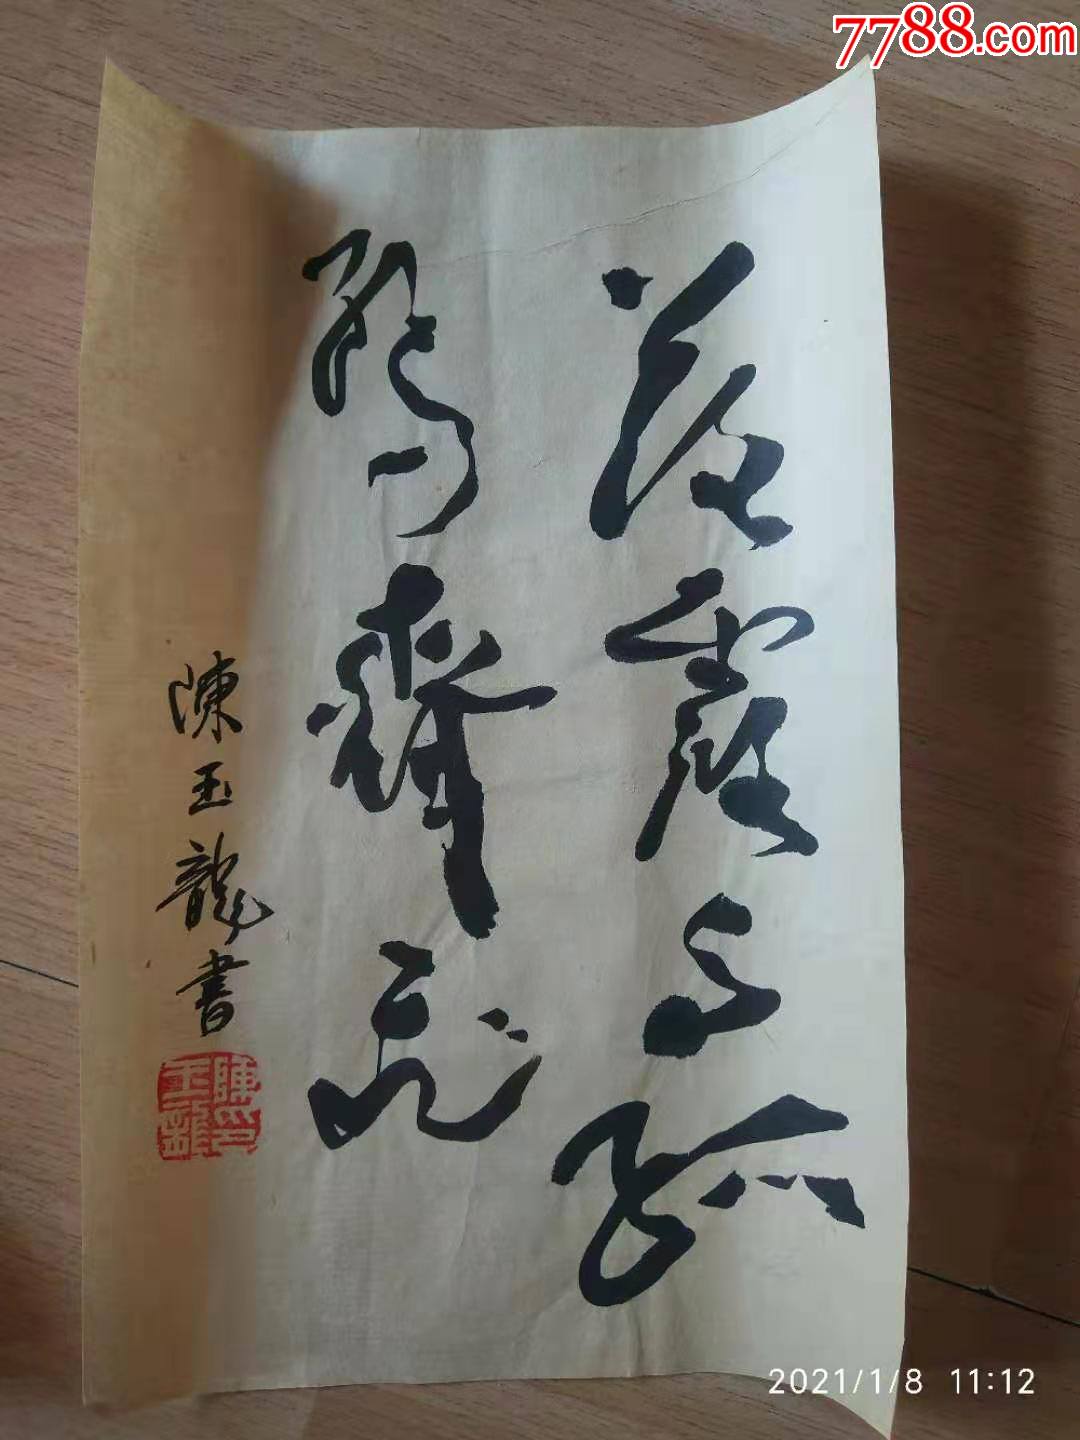 7788.com
落霞与孤
鹜齊飛
陳玉龍書
陳玉龍印
2021/1/8 11:12